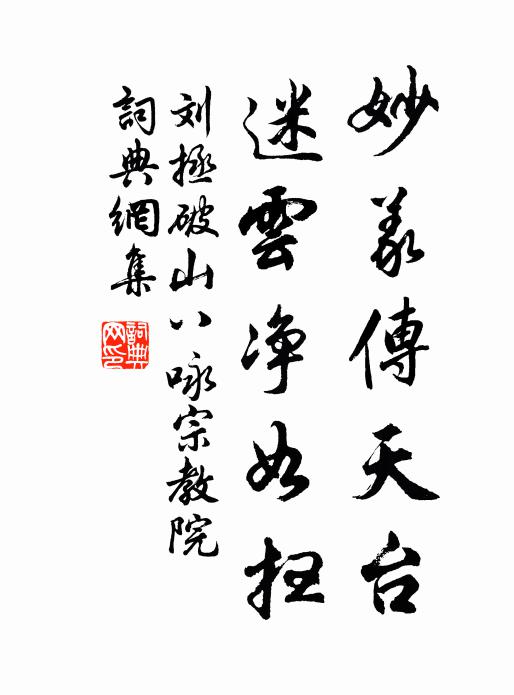 妙義傳天台
迷雲净如扫
刘拯破山八咏宗教院
詞典網集
詞典網印